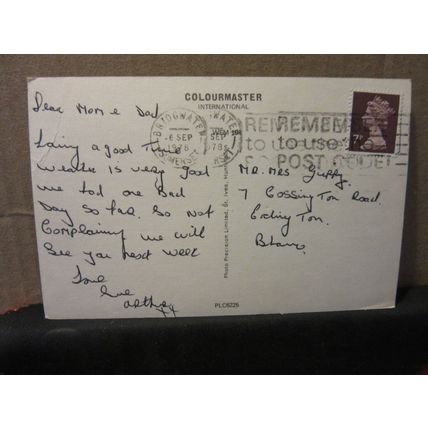 COLOURMASTER
INTERNATIONAL
Dear Mom & Dad
Laing a good Time
Weathe is very good
we had one Bad
Day so far. So Not
Complaining we will
See you next week
love
BRIDGWATER
-6 SEP
1978
SOMERSET
REMEMBER
to use the
POST CODE!
7P
MR. MRS Guppy
7 Cossington Road
Erdington
Bham
Photo Precision Limited, St. Ives, Hunt
PLC6226